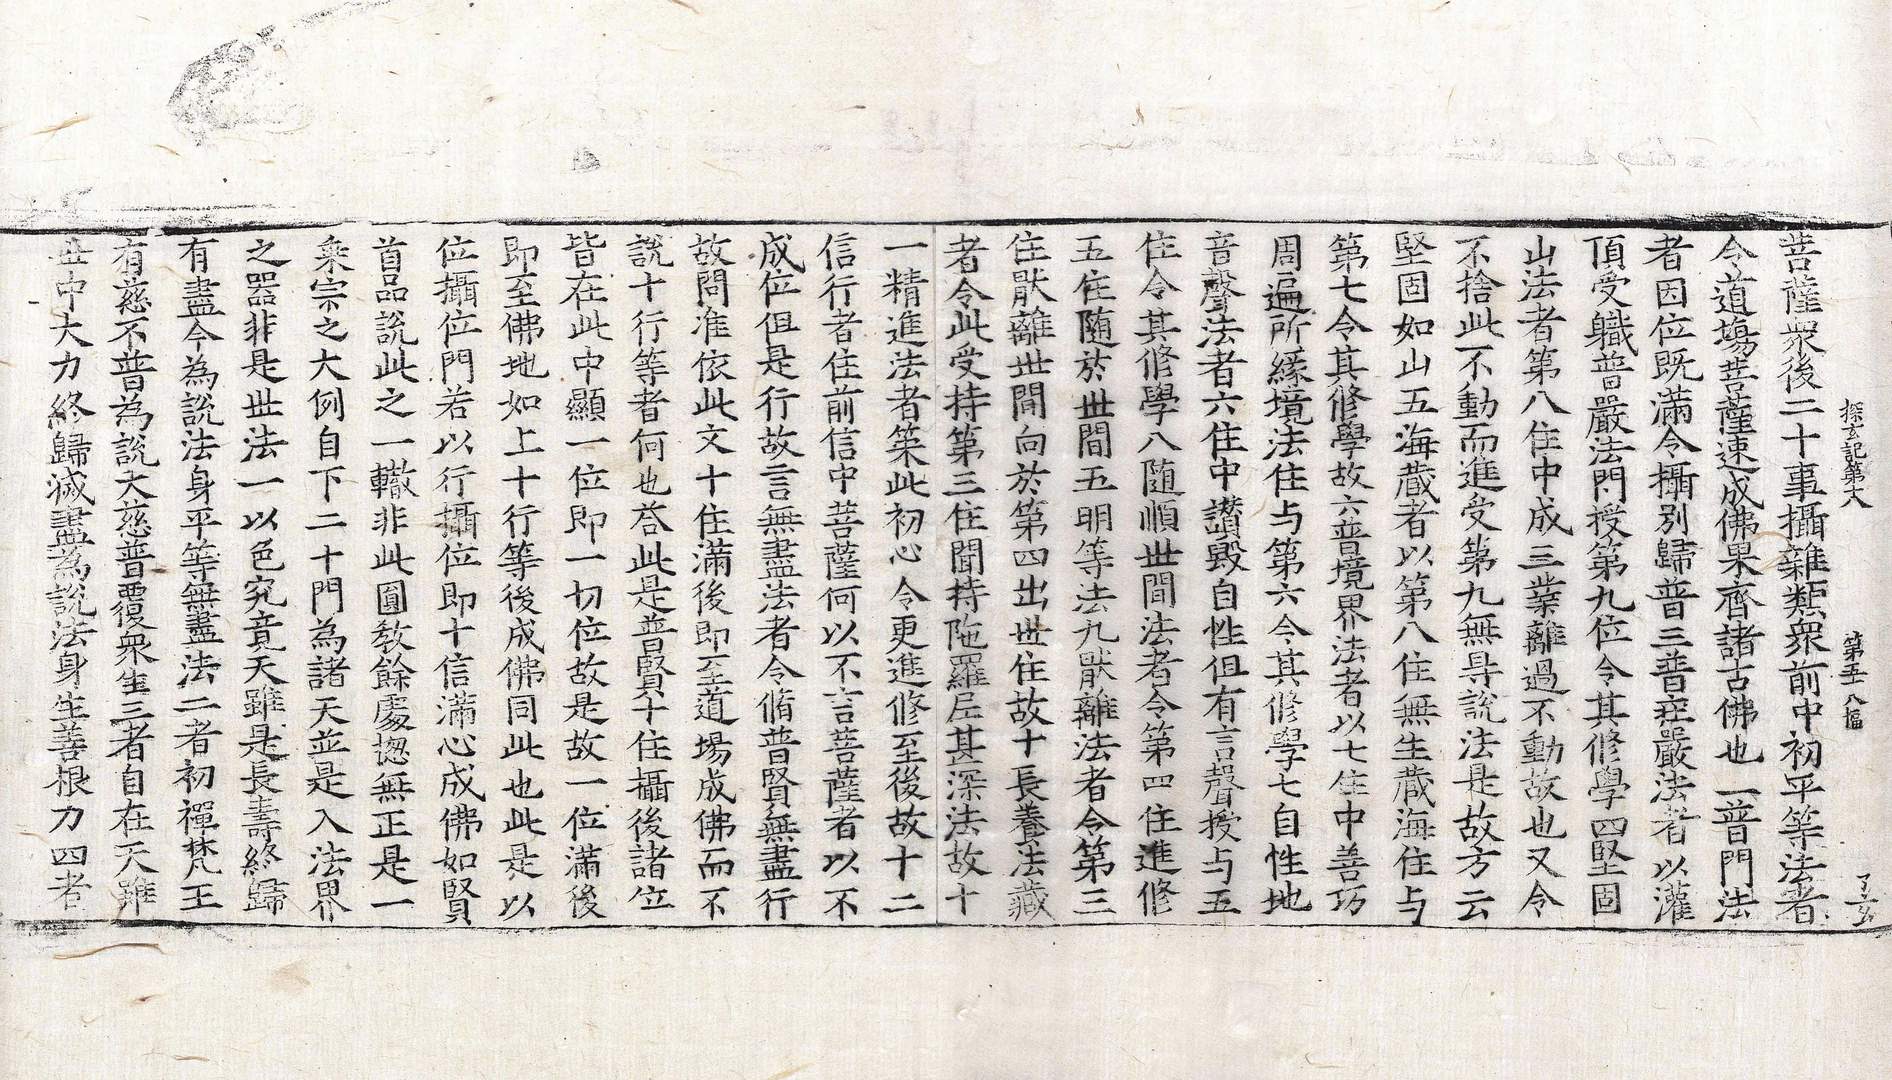 探玄記第六 第五 八幅
菩薩衆後二十事攝雜類衆前中初平等法者
令道場菩薩速成佛果齊諸古佛也一普門法
者因位既滿令攝別歸普三普莊嚴法者以灌
頂受軄普嚴法門授第九位令其修學四堅固
山法者第八住中成三業離過不動故也又令
不捨此不動而進受第九無㝵說法是故方云
堅固如山五海藏者以第八住無生藏海住与
第七令其修學故六普境界法者以七住中善巧
周遍所緣境法住与第六令其修學七自性地
音聲法者六住中讃毀自性但有言聲授与五
住令其修學八随順世間法者令第四住進修
五住随於世間五明等法九猒離法者令第三
住猒離世間向於第四出世住故十長養法藏
者令此受持第三住聞持陁羅尼甚深法故十
一精進法者策此初心令更進修至後故十二
信行者住前信中菩薩何以不言菩薩者以不
成位但是行故言無盡法者令脩普賢無盡行
故問准依此文十住滿後即至道場成佛而不
說十行等者何也答此是普賢十住攝後諸位
皆在此中顯一位即一切位故是故一位滿後
即至佛地如上十行等後成佛同此也此是以
位攝位門若以行攝位即十信滿心成佛如賢
首品說此之一轍非此圓教餘處揔無正是一
乘宗之大例自下二十門為諸天並是入法界
之器非是世法一以色究竟天雖是長壽終歸
有盡今為說法身平等無盡法二者初禪梵王
有慈不普為說大慈普覆衆生三者自在天雖
世中大力終歸滅盡為說法身生善根力四者